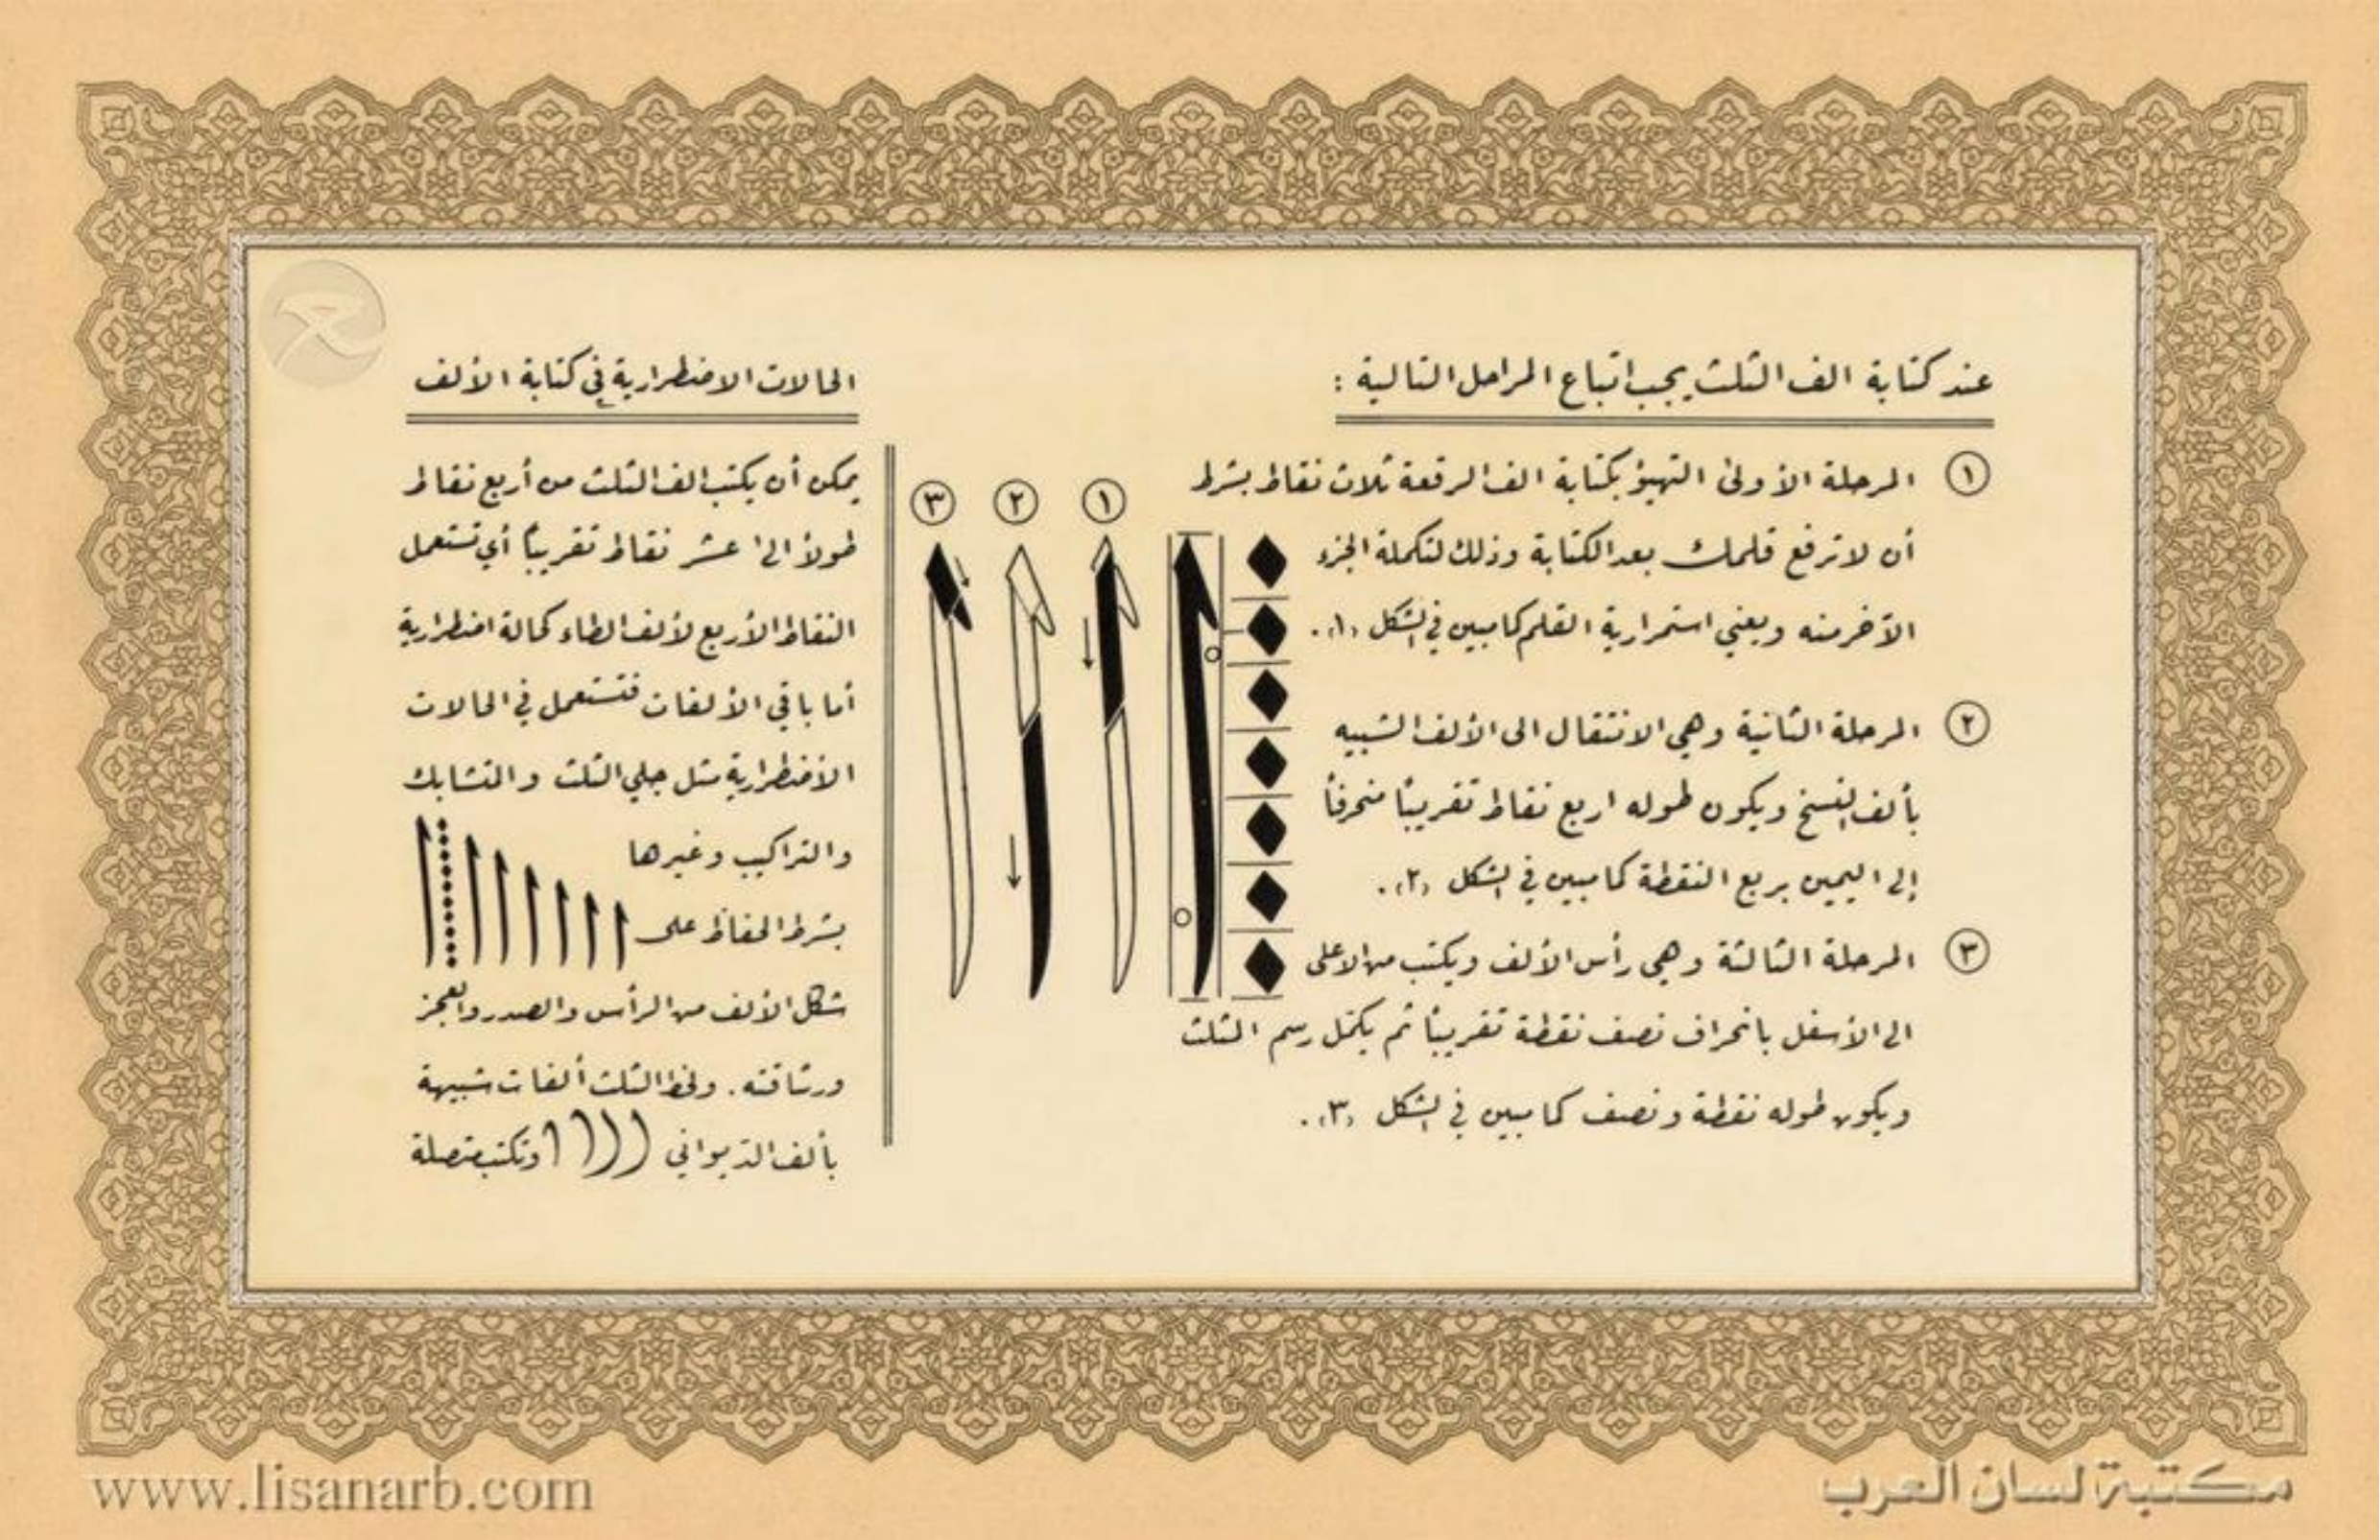 عند كتابة الف الثلث يجب اتباع المراحل التالية :
١ المرحلة الأولى التهيؤ بكتابة الف الرقعة ثلاث نقاط بشرط
أن لا ترفع قلمك بعد الكتابة وذلك لتكملة الجزء
الآخر منه ويعني استمرارية القلم كما مبين في الشكل (١).
٢ المرحلة الثانية وهي الانتقال الى الألف الشبيه
بألف النسخ ويكون طوله اربع نقاط تقريباً منحرفاً
إلى اليمين بربع النقطة كما مبين في الشكل (٢).
٣ المرحلة الثالثة وهي رأس الألف ويكتب من الاعلى
الى الأسفل بانحراف نصف نقطة تقريباً ثم يكمل رسم المثلث
ويكون طوله نقطة ونصف كما مبين في الشكل (٣).
١ ٢ ٣
الحالات الاضطرارية في كتابة الألف
يمكن أن يكتب الف الثلث من أربع نقاط
طولاً الى عشر نقاط تقريباً أي تستعمل
النقاط الأربع لألف الطاء كحالة اضطرارية
أما باقي الألفات فتستعمل في الحالات
الأضطرارية مثل جلي الثلث والتشابك
والتراكيب وغيرها
بشرط الحفاظ على
شكل الألف من الرأس والصدر والعجز
ورشاقته. ولخط الثلث ألفات شبيهة
بألف الديواني وتكتب متصلة
www.lisanarb.com
مكتبة لسان العرب